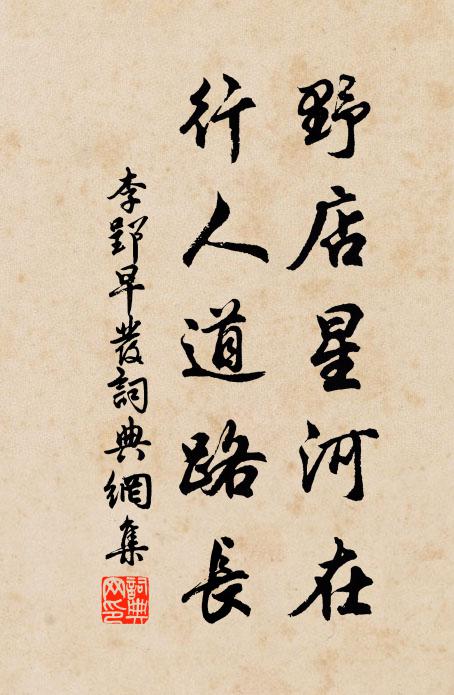 野店星河在
行人道路長
李郢早發詞典網集
詞典網印